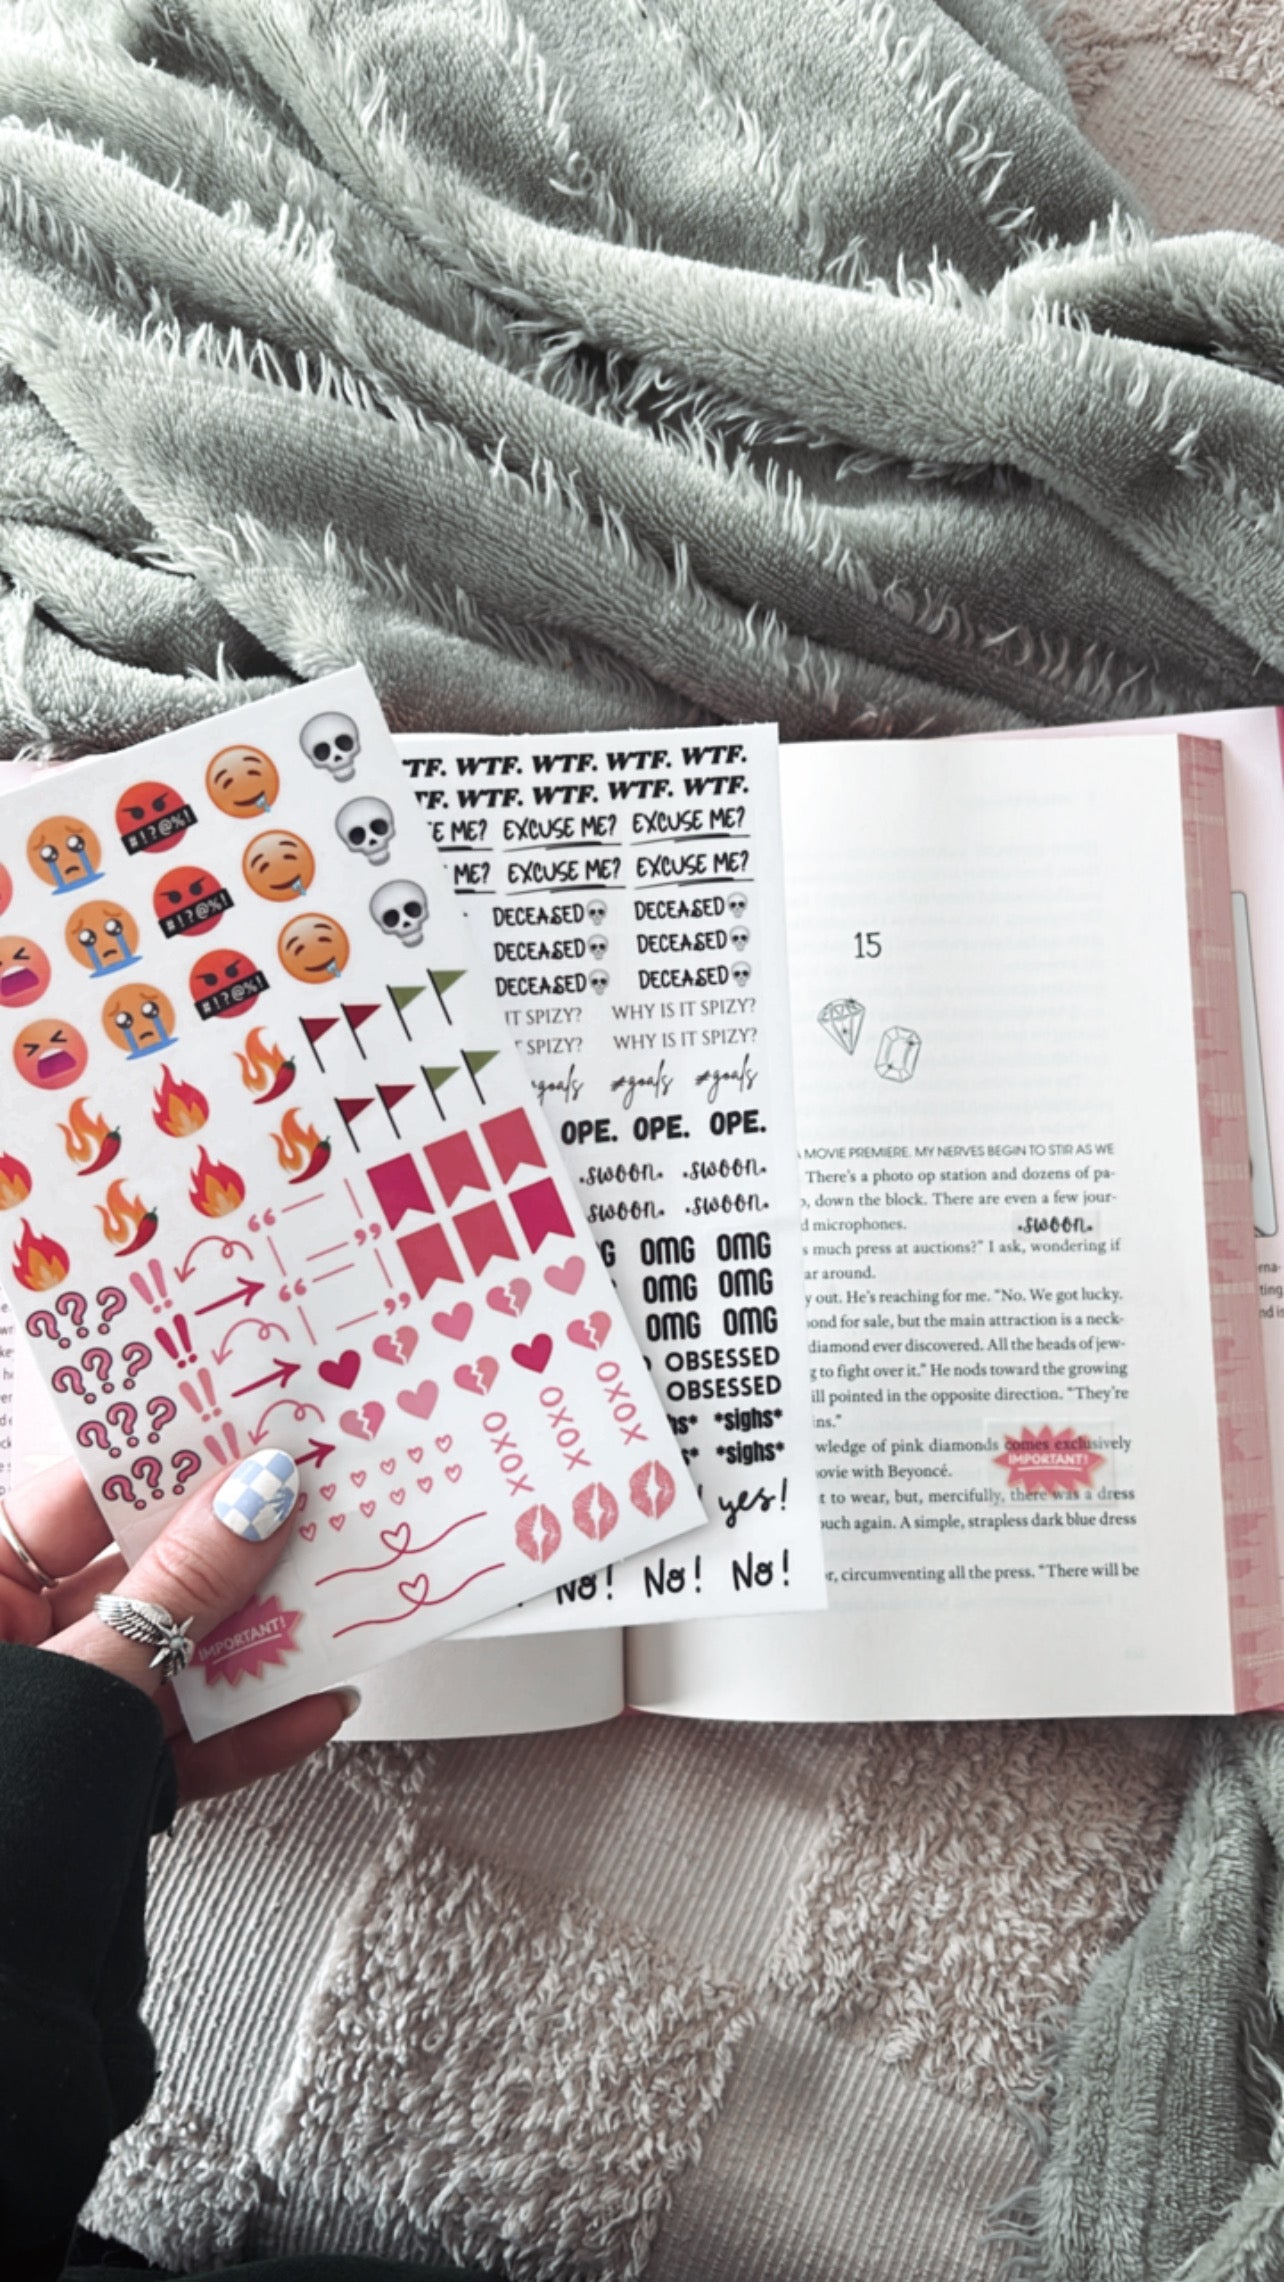 TF. WTF. WTF. WTF. WTF.
TF. WTF. WTF. WTF. WTF.
E ME? EXCUSE ME? EXCUSE ME?
ME? EXCUSE ME? EXCUSE ME?
DECEASED DECEASED
DECEASED DECEASED
DECEASED DECEASED
IT SPIZY? WHY IS IT SPIZY?
SPIZY? WHY IS IT SPIZY?
goals #goals #goals
OPE. OPE. OPE.
.swoon. .swoon.
swoon. .swoon.
G OMG OMG
OMG OMG
OMG OMG
OBSESSED
OBSESSED
hs* *sighs*
s* *sighs*
yes!
No! No! No!
#!?@%!
#!?@%!
#!?@%!
“
” “
”
!!
!!
!!
!!
???
???
???
???
XOXO XOXO XOXO
IMPORTANT!
15
MOVIE PREMIERE. MY NERVES BEGIN TO STIR AS WE
There’s a photo op station and dozens of pa-
, down the block. There are even a few jour-
d microphones.
.swoon.
s much press at auctions?” I ask, wondering if
ar around.
y out. He’s reaching for me. “No. We got lucky.
ond for sale, but the main attraction is a neck-
diamond ever discovered. All the heads of jew-
g to fight over it.” He nods toward the growing
ill pointed in the opposite direction. “They’re
ins.”
wledge of pink diamonds comes exclusively
IMPORTANT!
ovie with Beyoncé.
t to wear, but, mercifully, there was a dress
ouch again. A simple, strapless dark blue dress
r, circumventing all the press. “There will be